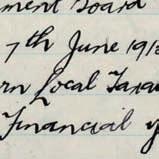 ment Board
7th June 191
rn Local Taxa
Financial y